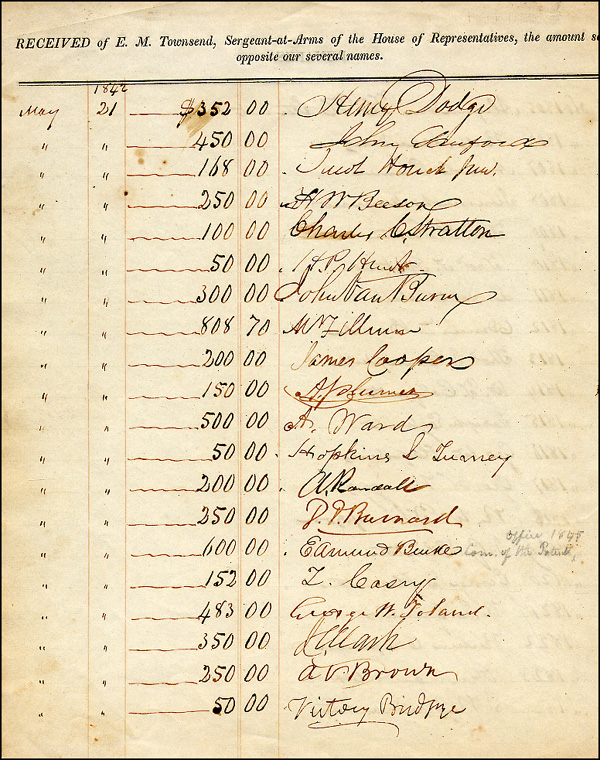 RECEIVED of E. M. Townsend, Sergeant-at-Arms of the House of Representatives, the amount s
opposite our several names.
1842
May 21 $352 00 Henry Dodge
" " 450 00 John
" " 168 00 Jacob Houck Jun.
" " 250 00 H W Beeson
" " 100 00 Charles C. Stratton
" " 50 00
" " 300 00 John Van Buren
" " 808 70 M Fillmore
" " 200 00 James Cooper
" " 150 00
" " 500 00 A. Ward
" " 50 00 Hopkins L Turney
" " 200 00 A Randall
" " 250 00 D. D. Barnard
" " 600 00 Edmund Burke Office 1845
Com. of the Patents
" " 152 00 Z. Casey
" " 483 00 George W. Toland.
" " 350 00 Clark
" " 250 00 A V. Brown
" " 50 00 Victory Birdseye